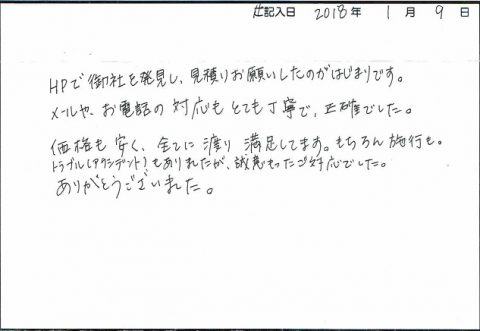 記入日 2018年 1月 9日
HPで御社を発見し、見積りお願いしたのがはじまりです。
メールや、お電話の対応もとても丁寧で、正確でした。
価格も安く、全てに渡り満足してます。もちろん施行も。
トラブル(アクシデント)もありましたが、誠意もったご対応でした。
ありがとうございました。